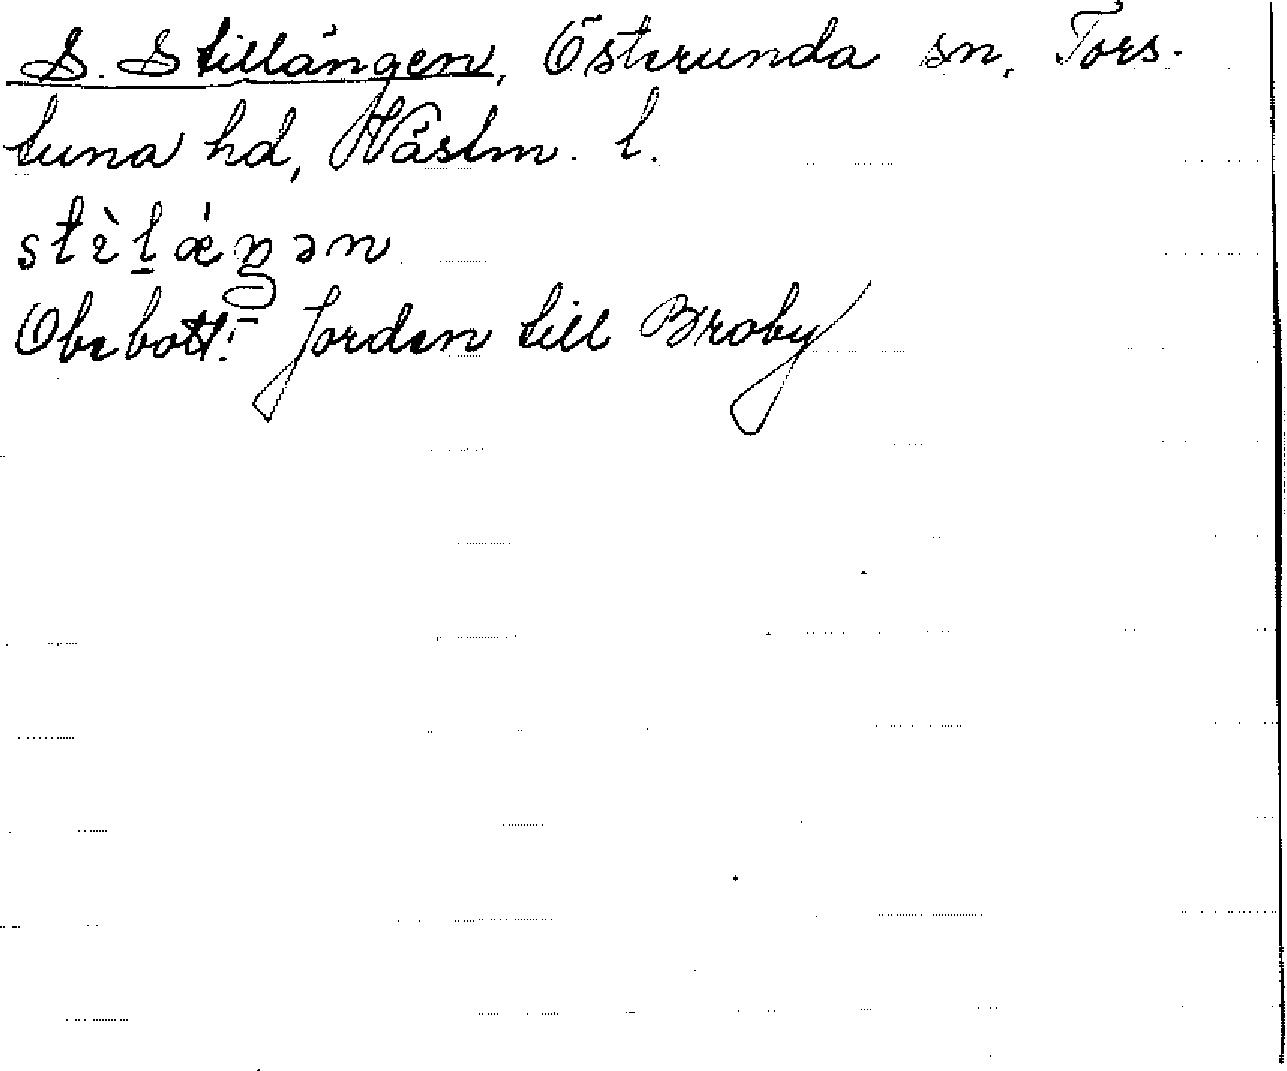 S. Stillängen, Österunda sn, Tors-
tuna hd, Västm. l.
stɛ̀l̠ǽŋən
Obebott. Jorden till Broby